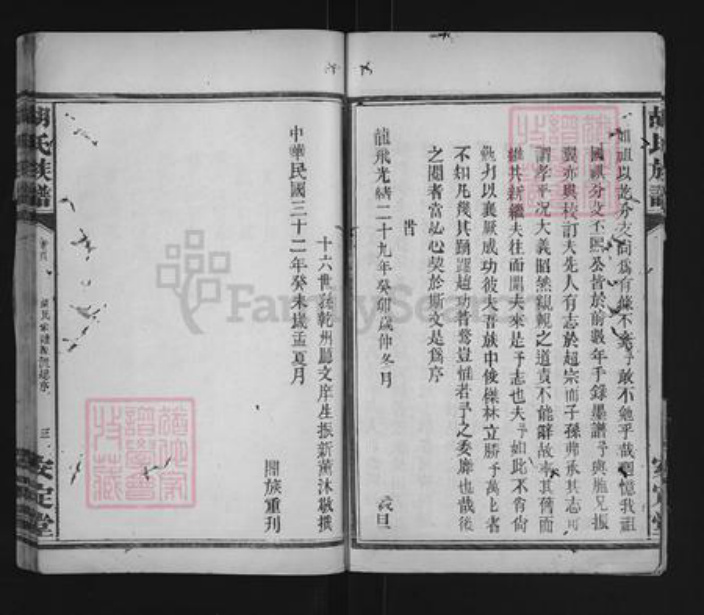 始祖以迄分支尚爲有條不紊予敢不勉乎哉因憶我祖
國祺分支不熙公皆於前數年手錄墨譜予與胞兄振
翼亦與校訂夫先人有志於趨宗而子孫弗承其志可
謂孝乎况大義昭然親親之道責不能辭故來其傳而
維其新繼夫往而開夫來是予志也夫予如此不肖尚
勉力以襄厥成功彼夫吾族中俊傑林立勝予萬上者
不知凡幾其踴躍趨功者奚豈惟者予之委靡也哉後
之閱者當必心契於斯文是爲序
旹
龍飛光緒二十九年癸卯歲仲冬月 穀旦
十六世孫乾州廳文庠生振新薰沐敬撰
中華民國三十二年癸未歲孟夏月
闔族重刊
胡氏族譜
卷首
三
安定堂
胡氏族譜
安定堂
FamilySearch